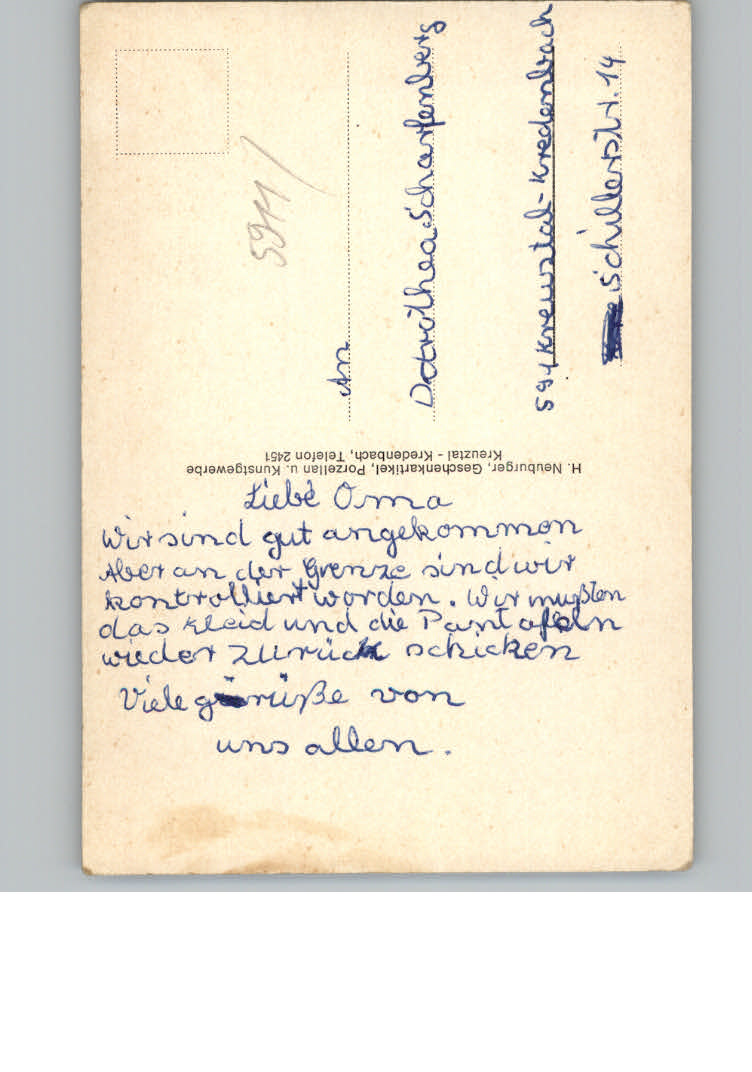 5911
An
Dorothea Scharfenberg
591 Kreuztal-Kredenbach
Schillerstr. 14
H. Neuburger, Geschenkartikel, Porzellan u. Kunstgewerbe
Kreuztal - Kredenbach, Telefon 2451
Liebe Oma
Wir sind gut angekommen
Aber an der Grenze sind wir
kontrolliert worden. Wir mußten
das Kleid und die Pantofeln
wieder zurück schicken
Viele grüße von
uns allen.